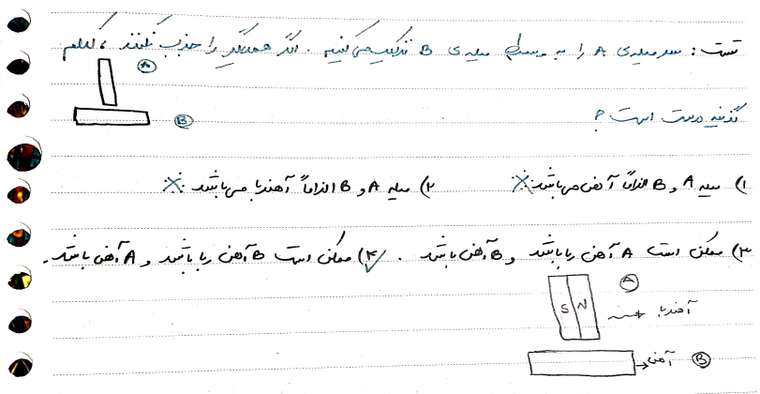 تست: سر میله‌ی A را به وسط میله‌ی B نزدیک می‌کنیم. اگر همدیگر را جذب نکنند، کدام
A
B
گزینه درست است؟
۱) میله A و B الزاماً آهن می‌باشد. ۲) میله A و B الزاماً آهنربا می‌باشد.
۳) ممکن است A آهن ربا باشد و B آهن باشد. ۴) ممکن است B آهن ربا باشد و A آهن باشد.
A
S N آهنربا
آهن B